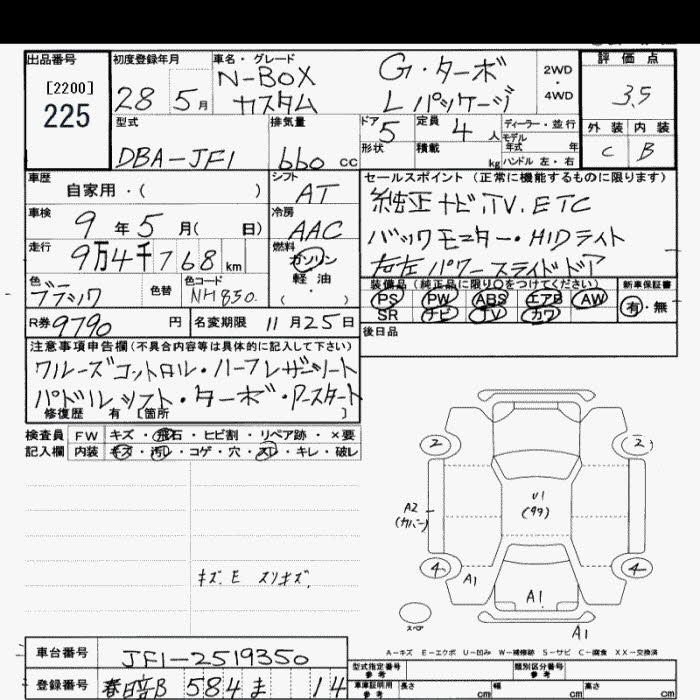 出品番号
[2200]
225
初度登録年月
28 5月
車名・グレード
N-BOX G・ターボ
カスタム L パッケージ
2WD
・
4WD
評価点
3.5
外装 内装
C B
型式
DBA-JF1
排気量
660 cc
ドア 5
形状
定員 4 人
積載 kg
ディーラー・並行
モデル
年式 年
ハンドル 左・右
車歴
自家用・( )
シフト
AT
車検
9年5月( 日)
冷房
AAC
走行
9万4千768km
燃料
ガソリン
軽油
( ・ )
色
ブラック
色替
色コード
NH850.
R券 9790 円
名変期限 11月25日
セールスポイント (正常に機能するものに限ります)
純正ナビ.TV.ETC
バックモニター・HIDライト
右左パワースライドドア
装備品 (純正品に限り○をつけてください)
PS PW ABS エアB AW
SR ナビ TV カワ
新車保証書
有・無
後日品
注意事項申告欄(不具合内容等は具体的に記入して下さい)
クルーズコントロル・ハーフレザーシート
パドルシフト・ターボ・Pスタート
修復歴 有 [箇所 ]
検査員
記入欄
FW キズ・飛石・ヒビ割・リペア跡・×要
内装 キズ・汚レ・コゲ・穴・スレ・キレ・破レ
キズ.E スリキズ.
2 2
A2
(カバー)
U1
(タタ)
4 4
A1
A1
A1
スペア
A-キズ E-エクボ U-凹み W-補修跡 S-サビ C-腐食 XX-交換済
車台番号
JF1-2519350
登録番号
春日部 584 ま 14
型式指定番号
参考
類別区分番号
参考
車庫証明用
参考
長さ cm 幅 cm 高さ cm